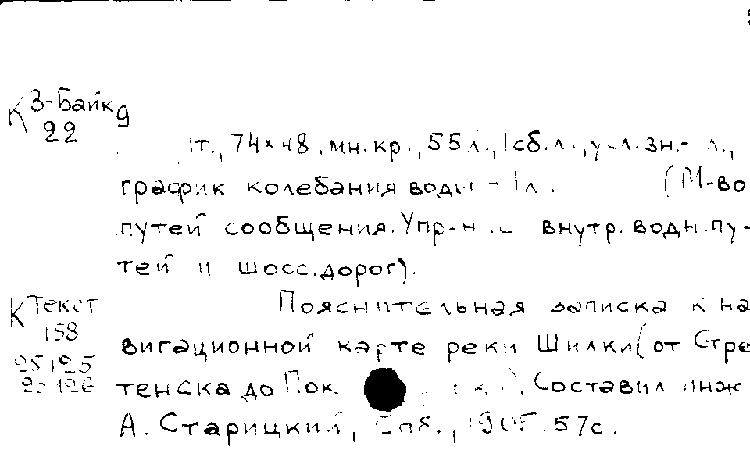 К 3-Байк 9
22
т., 74×48, мн. кр., 55 л., 1 сб. л., у.л. зн. - л.,
график колебания воды - 1 л. (М-во
путей сообщения. Упр-н внутр. водн. пу-
тей и шосс. дорог).
К Текст
158
25125
25126
Пояснительная записка к на
вигационной карте реки Шилки (от Стре
тенска до Пок. Составил инж
А. Старицкий, Спб., 57 с.